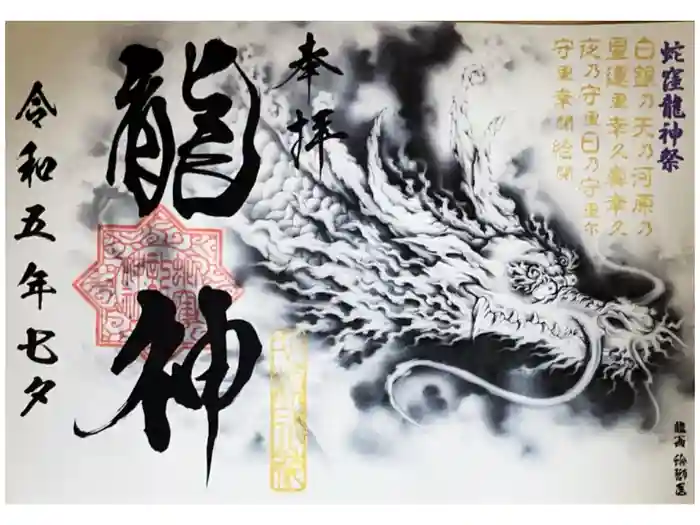 蛇窪龍神祭
白銀乃天乃河原乃
里幸久幸久
夜乃守里日乃守里尓
守里幸閉給閉
奉拝
龍神
令和五年七夕
龍画